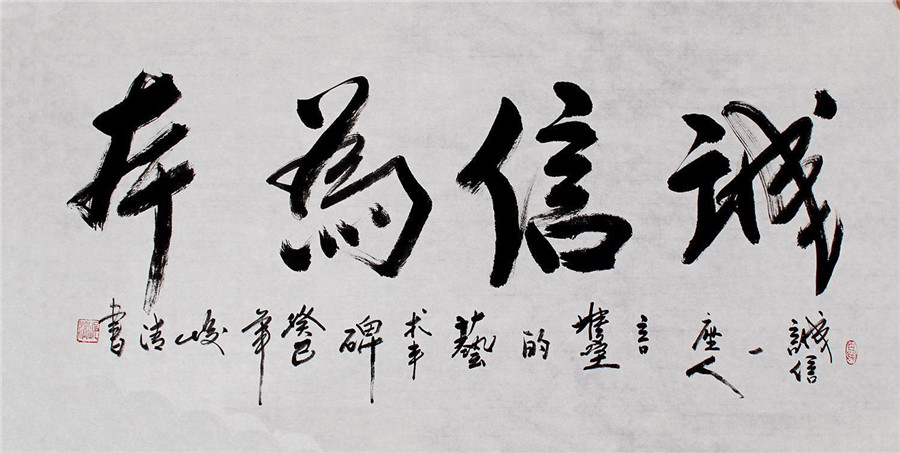 誠信為本
誠信一座人言的藝術丰碑癸巳年峻清書